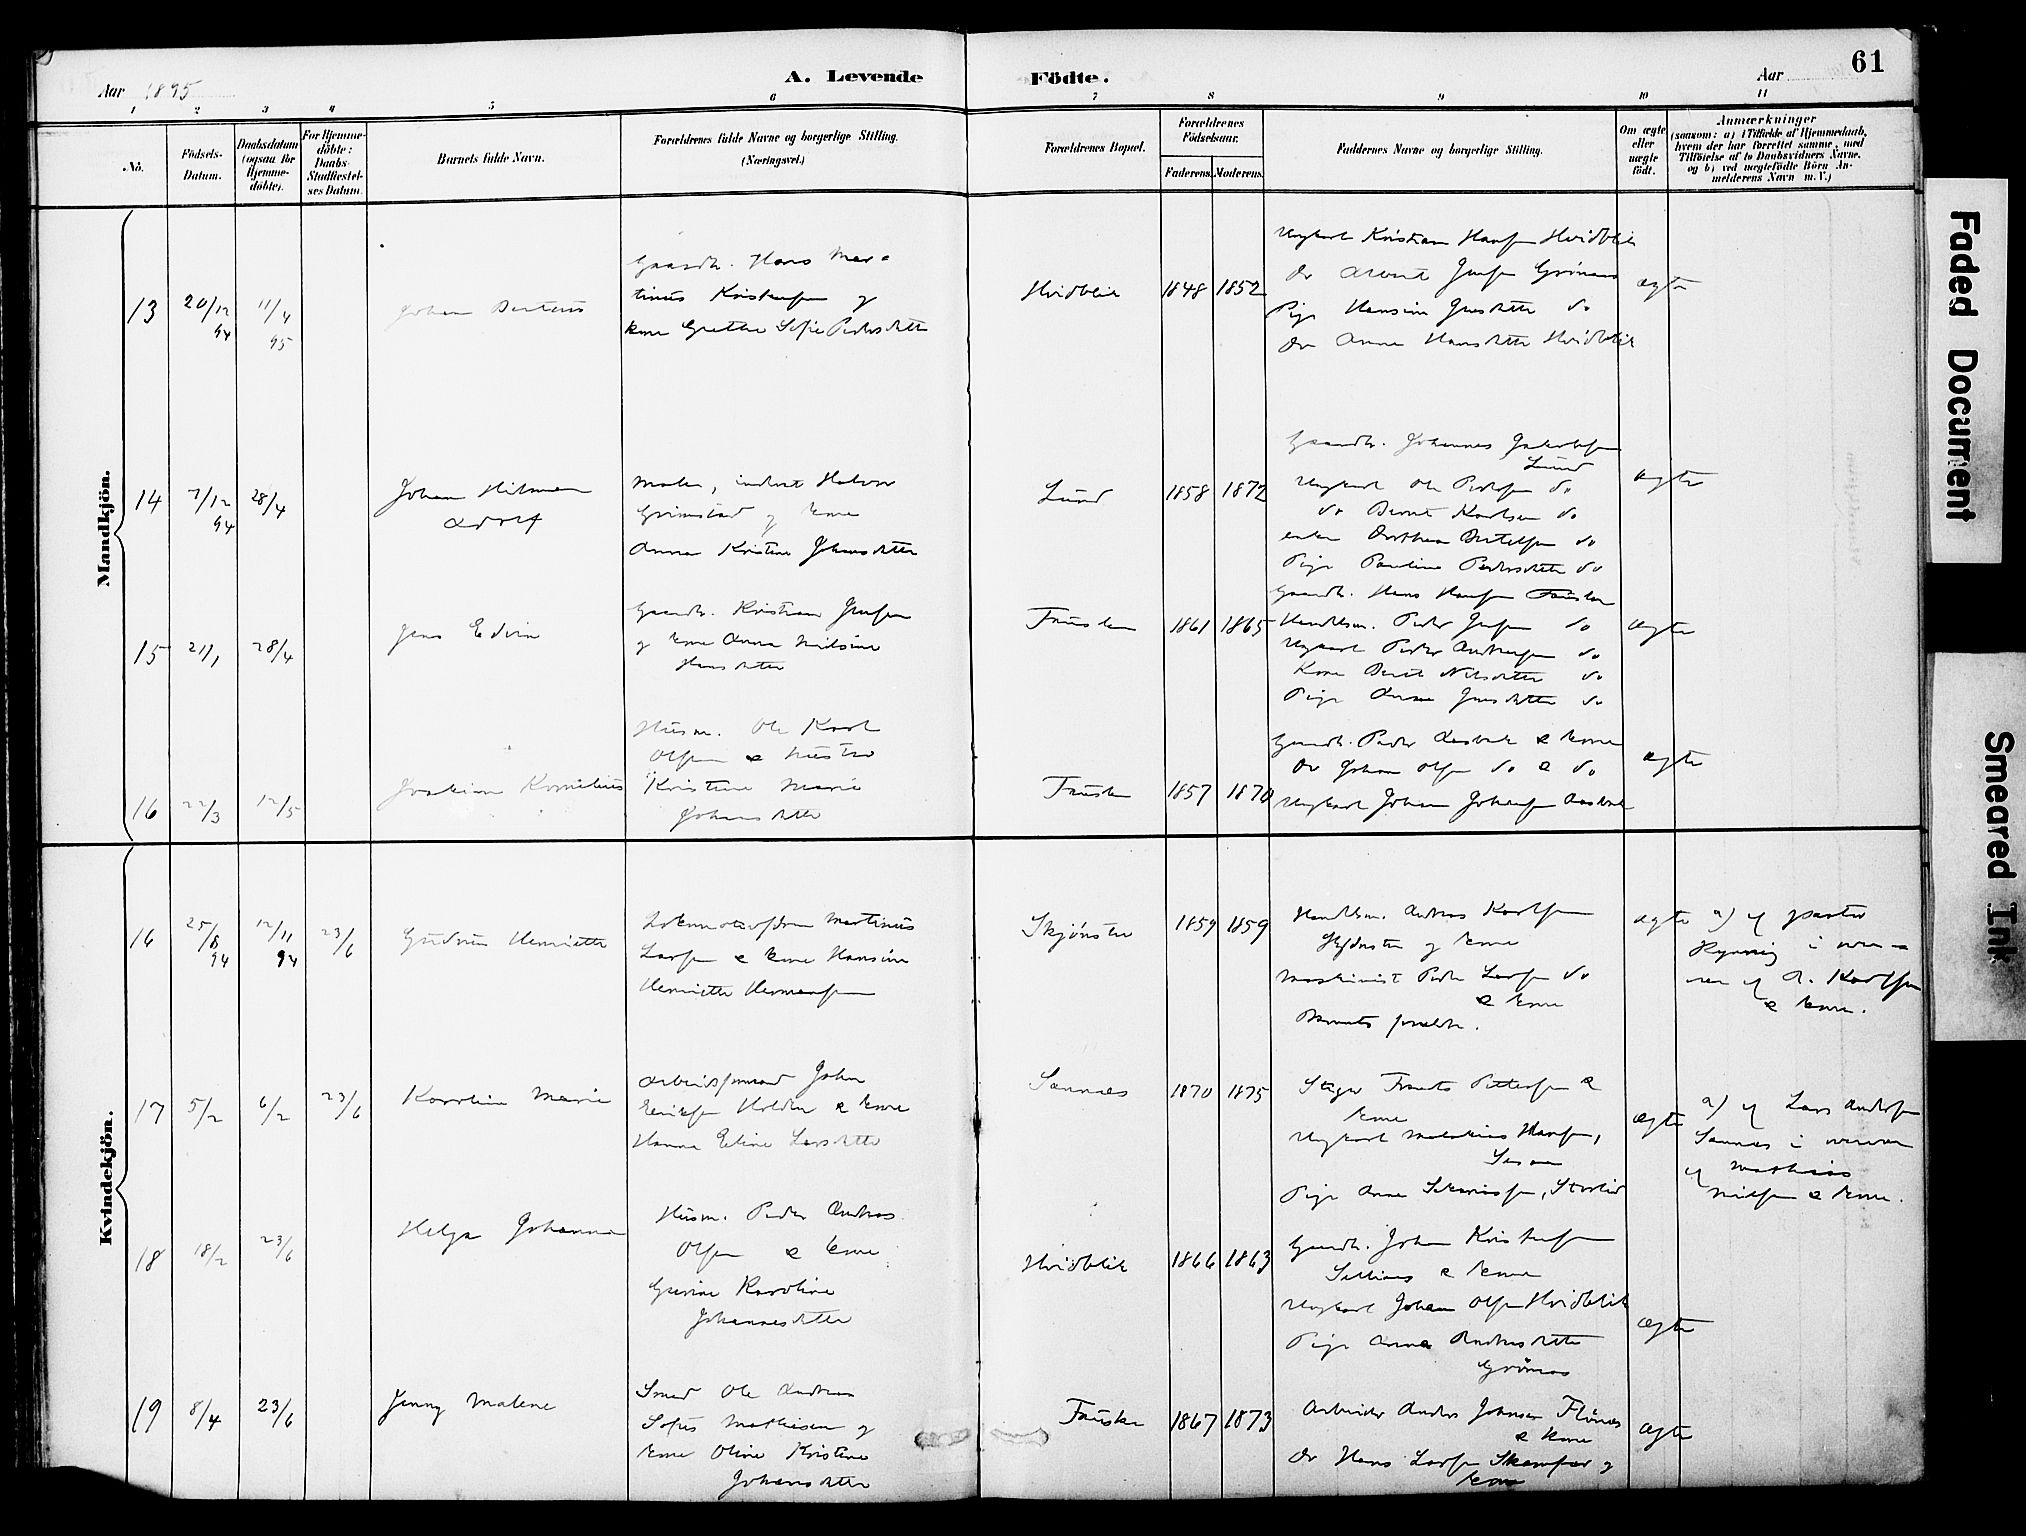 61
Aar 1895
A. Levende Födte.
Aar
1 2 3 4 5 6 7 8 9 10 11
No.
Födsels-Datum.
Daabsdatum (ogsaa for Hjemme-döbte).
For Hjemme-döbte: Daabs-Stadfæstel-ses Datum.
Barnets fulde Navn.
Forældrenes fulde Navne og borgerlige Stilling. (Næringsvei.)
Forældrenes Bopæl.
Forældrenes Födselsaar.
Faderens. Moderens.
Faddernes Navne og borgerlige Stilling.
Om ægte eller uægte födt.
Anmærkninger
(saasom: a) i Tilfælde af Hjemmedaab, hvem der har forrettet samme, med Tilföielse af to Daabsvidners Navne, og b) ved uægtefödte Börn An-melderens Navn m. V.)
Mandkjön.
13 20/12 94 11/4 95 Johan
Gaardb. Hans Mar-
tinus Kristensen og
kone Grethe Sofie Pedersdatter
Hvidblik 1848 1852
Ungkarl Kristian Hansen Hvidblik
Do Jensen Grønaas
Pige Hansine Jensdatter do
Do Anna Hansdatter Hvidblik
ægte
14 7/12 94 28/4 Johan Hilmar
Adolf
Maler, Halvor
Grimstad og kone
Anna Kristine Johansdatter
Lund 1858 1872
Gaardb. Johannes
Lund
Ungkarl Ole Pedersen do
do Bernt Karlsen do
enke Dorthea Bertelsen do
Pige Pauline Pedersdatter do
ægte
15 21/1 28/4 Jens Edvin
Gaardb. Kristian Jensen
og kone Anna
Hansdatter
Fauske 1861 1865
Gaardb. Hans Hansen Fauske
Handelsm. Peder Jensen do
Ungkarl Peder Andreassen do
Kone Berit Nilsdatter do
Pige Anna Jensdatter do
ægte
16 22/3 12/5 Joakim Kornelius
Husm. Ole Karl
Olsen & hustru
Kristine Marie
Johansdatter
Fauske 1857 1870
Gaardb. Peder & kone
Do Johan Olsen do & do
Ungkarl Johan Johansen
ægte
Kvindekjön.
16 25/8 94 12/11 94 23/6 Gudrun Henriette
Martinus
Larsen & kone Hansine
Henriette Hermansen
Skjønstu 1859 1859
Handelsm. Andreas Karlsen
Skjønstu og kone
Maskinist Peder Larsen do
& kone
Barnets foreldre.
ægte
a) af pastor
Rynning i over-
vær af A. Karlsen
& kone.
17 5/2 6/2 23/6 Karoline Marie
Arbeidsformand Johan
Eriksen Holden & kone
Hanna Eline Larsdatter
Sannæs 1870 1875
Stiger Frants Pettersen &
kone
Ungkarl Malakias Hansen,
Pige Anna Storlid
ægte
a) af Lars Andersen
Sannæs i overvær
af Mathias
Nilsen & kone.
18 18/2 23/6 Helga Johanna
Husm. Peder Andreas
Olsen & kone
Gurine Karoline
Johannesdatter
Hvidblik 1866 1863
Gaardb. Johan Kristensen
& kone
Ungkarl Johan Olsen Hvidblik
Pige Anna Andreasdatter
Grønaas
ægte
19 8/4 23/6 Jenny Malene
Smed Ole Andreas
Sofus Mathisen og
kone Oline Kristine
Johansdatter
Fauske 1867 1873
Arbeider Anders Johnsen
& kone
Do Hans Larsen og
kone
ægte
Faded Document
Smeared Ink